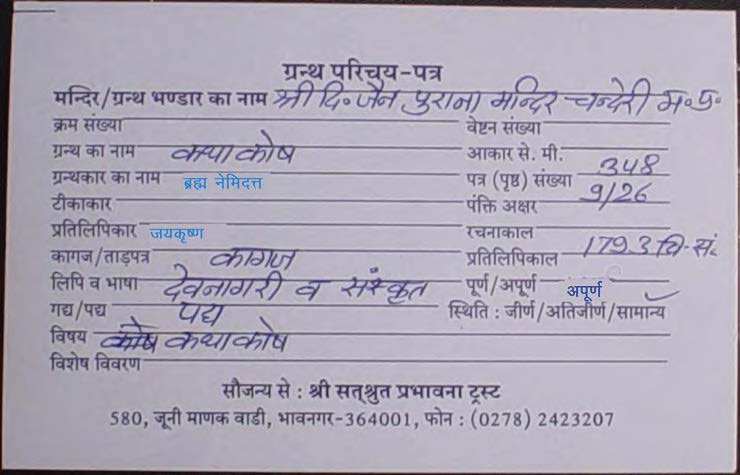 ग्रन्थ परिचय-पत्र
मन्दिर/ग्रन्थ भण्डार का नाम श्री दि॰ जैन पुराना मन्दिर चन्देरी म॰ प्र॰
क्रम संख्या वेष्टन संख्या
ग्रन्थ का नाम कथा कोष आकार से. मी.
ग्रन्थकार का नाम ब्रह्म नेमिदत्त पत्र (पृष्ठ) संख्या 348
टीकाकार पंक्ति अक्षर 9/26
प्रतिलिपिकार जयकृष्ण रचनाकाल
कागज/ताड़पत्र कागज प्रतिलिपिकाल 1793 वि-सं.
लिपि व भाषा देवनागरी व संस्कृत पूर्ण/अपूर्ण अपूर्ण
गद्य/पद्य पद्य स्थिति : जीर्ण/अतिजीर्ण/सामान्य
विषय कोष कथा कोष
विशेष विवरण
सौजन्य से : श्री सत्श्रुत प्रभावना ट्रस्ट
580, जूनी माणक वाडी, भावनगर-364001, फोन : (0278) 2423207